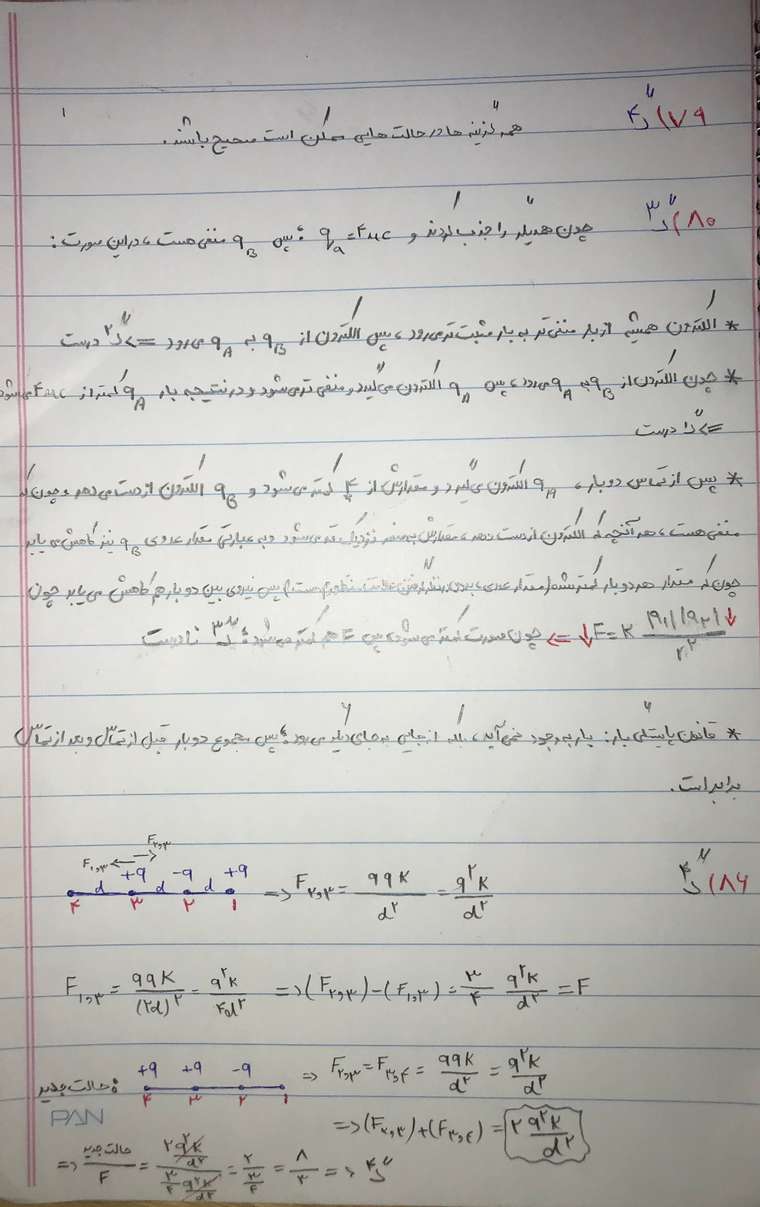 ۷۹) گ۴ همه گزینه ها در حالت هایی ممکن است صحیح باشند.
۸۰) گ۳ چون همدیگر را جذب کردند و qₐ=۴μc ؛ پس q_B منفی هست، در این صورت:
* الکترون همیشه از بار منفی تر به بار مثبت تر می رود، پس الکترون از q_B به q_A می رود => گ۲ درست
* چون الکترون از q_B به q_A می رود، پس q_A الکترون می گیرد و منفی تر می شود و در نتیجه بار q_A کمتر از ۴μc می شود
=> گ۱ درست
* پس از تماس دو بار، q_A الکترون می گیرد و مقدارش از ۴ کمتر می شود و q_B الکترون از دست می دهد و چون که
منفی هست، هر آنچه که الکترون از دست دهد، مقدارش به صفر نزدیک تر می شود و به عبارتی مقدار عددی q_B نیز کاهش می یابد
چون که مقدار هر دو بار کمتر شده (مقدار عددی، بدون در نظر گرفتن علامت منظورم هست) پس نیروی بین دو بار هم کاهش می یابد چون
↓F = K |q₁||q₂|↓ / r² => چون صورت کمتر می شود، پس F هم کمتر می شود؛ گ۳ نادرست
* قانون پایستگی بار: بار به وجود نمی آید، بلکه از جایی به جای دیگر می رود؛ پس مجموع دو بار قبل از تماس و بعد از تماس
برابر است.
۸۶) گ۴
F₁,₃ ← → F₂,₃
+q -q +q
d d d
۴ ۳ ۲ ۱
=> F₂,₃ = qqK / d² = q²K / d²
F₁,₃ = qqK / (۲d)² = q²K / ۴d² => (F₂,₃) - (F₁,₃) = ۳/۴ q²K / d² = F
حالت جدید:
+q +q -q
۴ ۳ ۲ ۱
=> F₂,₃ = F₃,₄ = qqK / d² = q²K / d²
PAN
=> (F₂,₃) + (F₃,₄) = ۲ q²K / d²
=> حالت جدید / F = (۲ q²K / d²) / (۳/۴ q²K / d²) = ۲ / (۳/۴) = ۸/۳ => گ۴